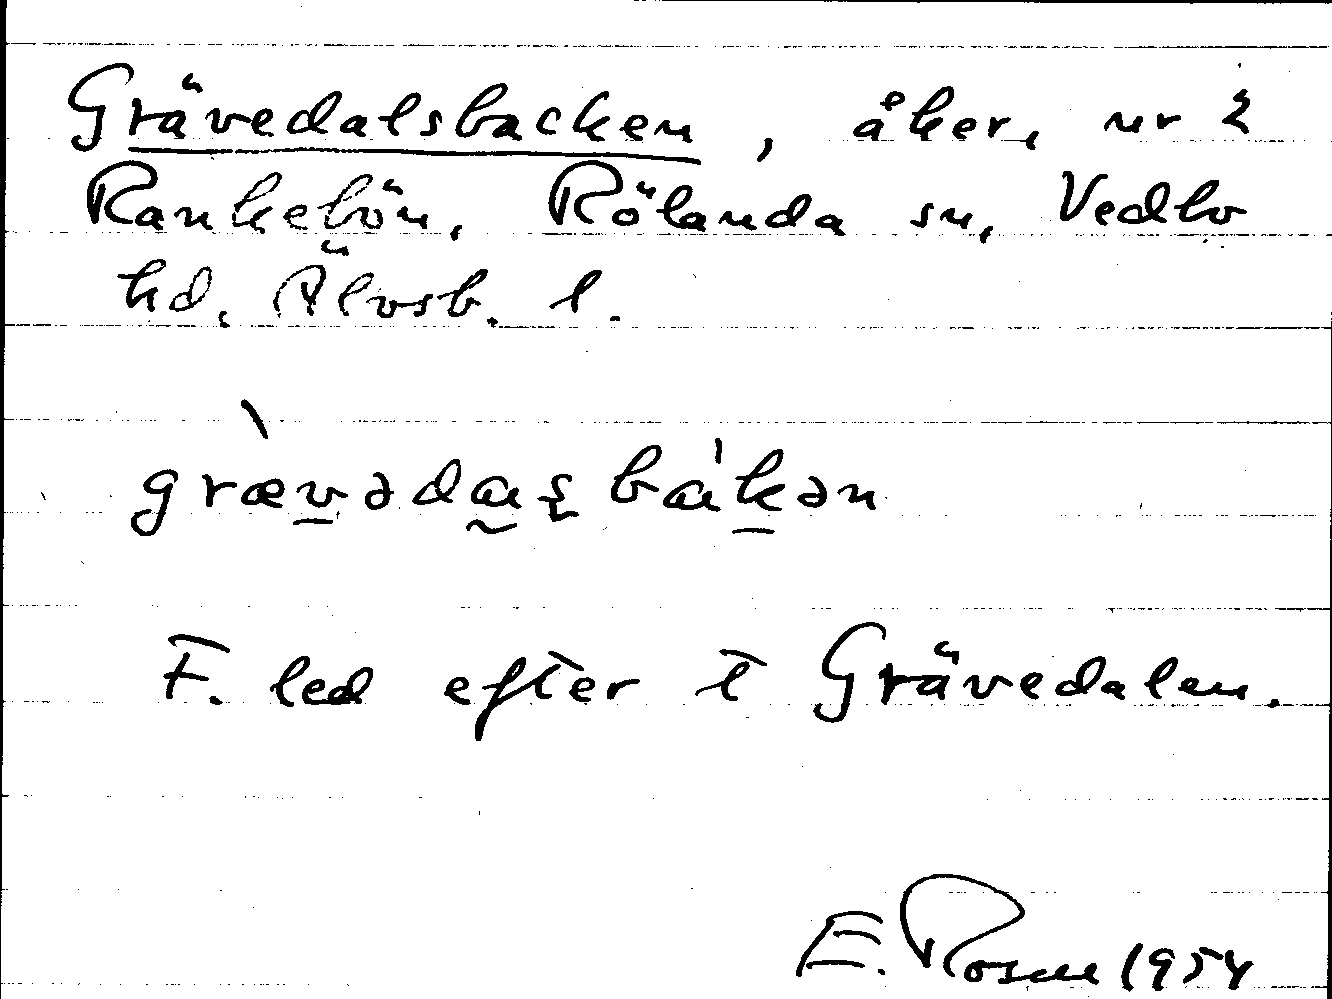 Grävedalsbacken, åker, nr 2
Rankebön, Rölanda sn, Vedbo
hd, Älvsb. l.
græ̀vədaʂbákən
F. led efter t Grävedalen.
E. Rosell 1954